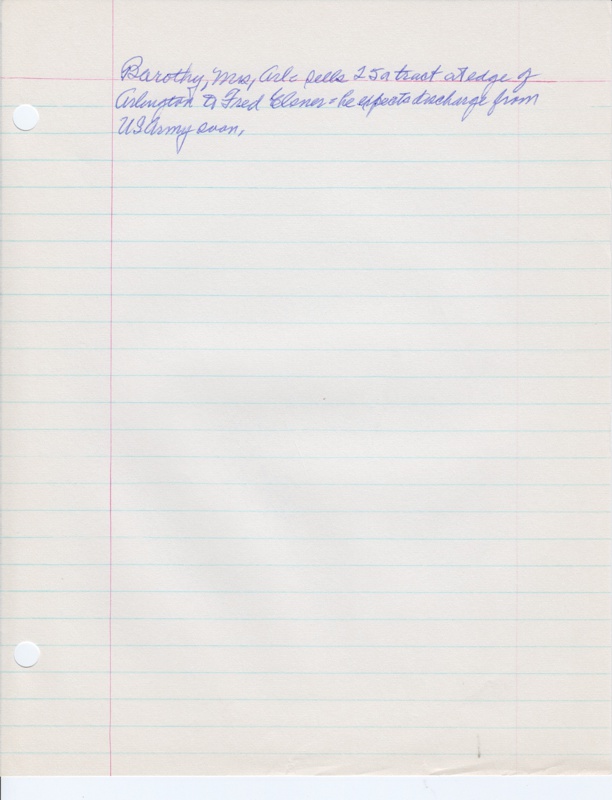 Barothy, Mrs, Arl- sells 25a tract at edge of
Arlington to Fred Elsner - he expects discharge from
US Army soon,